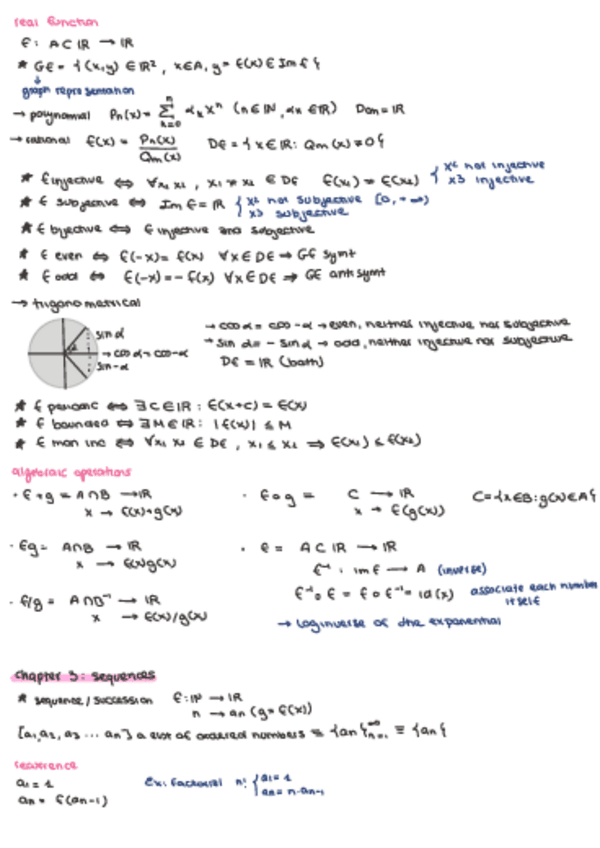 real function
f: A ⊂ ℝ → ℝ
* Gf = {(x,y) ∈ ℝ², x∈A, y= f(x) ∈ Im f}
graph representation
→ polynomial Pn(x)= Σ_{k=0}^{n} αk xⁿ (n∈ℕ, αk ∈ℝ) Dom=ℝ
→ rational f(x) = Pn(x)/Qm(x) Df={x∈ℝ: Qm(x)≠0}
* f injective ⇔ ∀x1 x2, x1 ≠ x2 ∈ Df f(x1) ≠ f(x2) { x² not injective
x3 injective
* f surjective ⇔ Im f = ℝ { x² not surjective [0, +∞)
x3 surjective
* f bijective ⇔ f injective and surjective
* f even ⇔ f(-x)= f(x) ∀x∈Df ⇒ Gf symt
* f odd ⇔ f(-x)=-f(x) ∀x∈Df ⇒ Gf anti symt
→ trigonometrical
sin α
→ cos α = cos -α
sin -α
→ cos α = cos -α → even, neither injective nor surjective
→ sin α = - sin α → odd, neither injective nor surjective
Df = ℝ (both)
* f periodic ⇔ ∃C∈ℝ: f(x+c) = f(x)
* f bounded ⇔ ∃M∈ℝ: |f(x)| ≤ M
* f mon inc ⇔ ∀x1 x2 ∈ Df, x1 ≤ x2 ⇒ f(x1) ≤ f(x2)
algebraic operations
· f+g = A∩B → ℝ
x → f(x)+g(x)
· f∘g = C → ℝ C={x∈B: g(x)∈A}
x → f(g(x))
· fg= A∩B → ℝ
x → f(x)g(x)
· f = A ⊂ ℝ → ℝ
f⁻¹: im f → A (inverse)
f⁻¹∘f = f∘f⁻¹ = id(x) associate each number
itself
→ log inverse of the exponential
· f/g = A∩B⁻¹ → ℝ
x → f(x)/g(x)
chapter 3: sequences
* sequence / succession f: ℕ → ℝ
n → an (y= f(x))
[a1,a2, a3 ... an] a list of ordered numbers ≡ {an}_{n=1}^{∞} ≡ {an}
recurrence
a1 = 1 Ex: factorial n! { a1 = 1
an = f(an-1) an = n·an-1